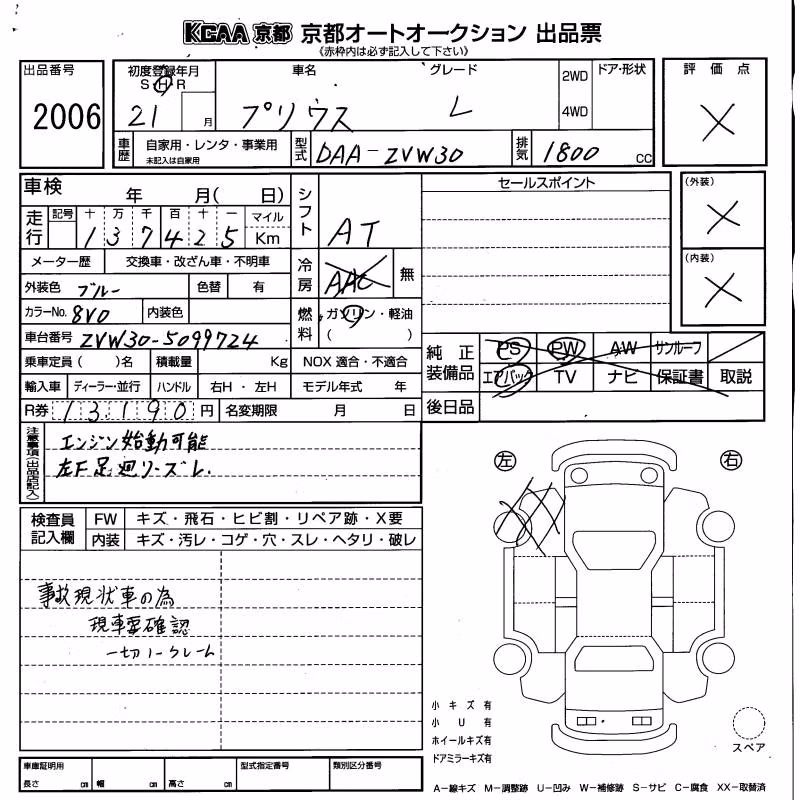 KCAA 京都 京都オートオークション 出品票
《赤枠内は必ず記入して下さい》
出品番号 初度登録年月 車名 グレード 2WD ドア・形状 評価点
S H R
2006 21 月 プリウス L 4WD X
車歴 自家用・レンタ・事業用 型式 DAA-ZVW30 排気 1800 cc
未記入は自家用
車検 年 月( 日) シフト AT セールスポイント (外装)
走行 記号 十 万 千 百 十 一 マイル X
1 3 7 4 2 5 Km
メーター歴 交換車・改ざん車・不明車 冷房 AAC 無 (内装)
外装色 ブルー 色替 有 X
カラーNo. 8V0 内装色 燃料 ガソリン・軽油
車台番号 ZVW30-5099724 ( )
乗車定員( )名 積載量 Kg NOX 適合・不適合 純正装備品 PS PW AW サンルーフ
輸入車 ディーラー・並行 ハンドル 右H・左H モデル年式 年 エアバック TV ナビ 保証書 取説
R券 13,190 円 名変期限 月 日 後日品
注意事項(出品店記入) エンジン始動可能
左F足廻リーズレ.
左 右
検査員記入欄 FW キズ・飛石・ヒビ割・リペア跡・X要
内装 キズ・汚レ・コゲ・穴・スレ・ヘタリ・破レ
事故現状車の為
現車要確認
一切ノークレーム
小キズ有
小U有
ホイールキズ有
ドアミラーキズ有
スペア
車庫証明用 型式指定番号 類別区分番号
長さ cm 幅 cm 高さ cm
A-線キズ M-調整跡 U-凹み W-補修跡 S-サビ C-腐食 XX-取替済